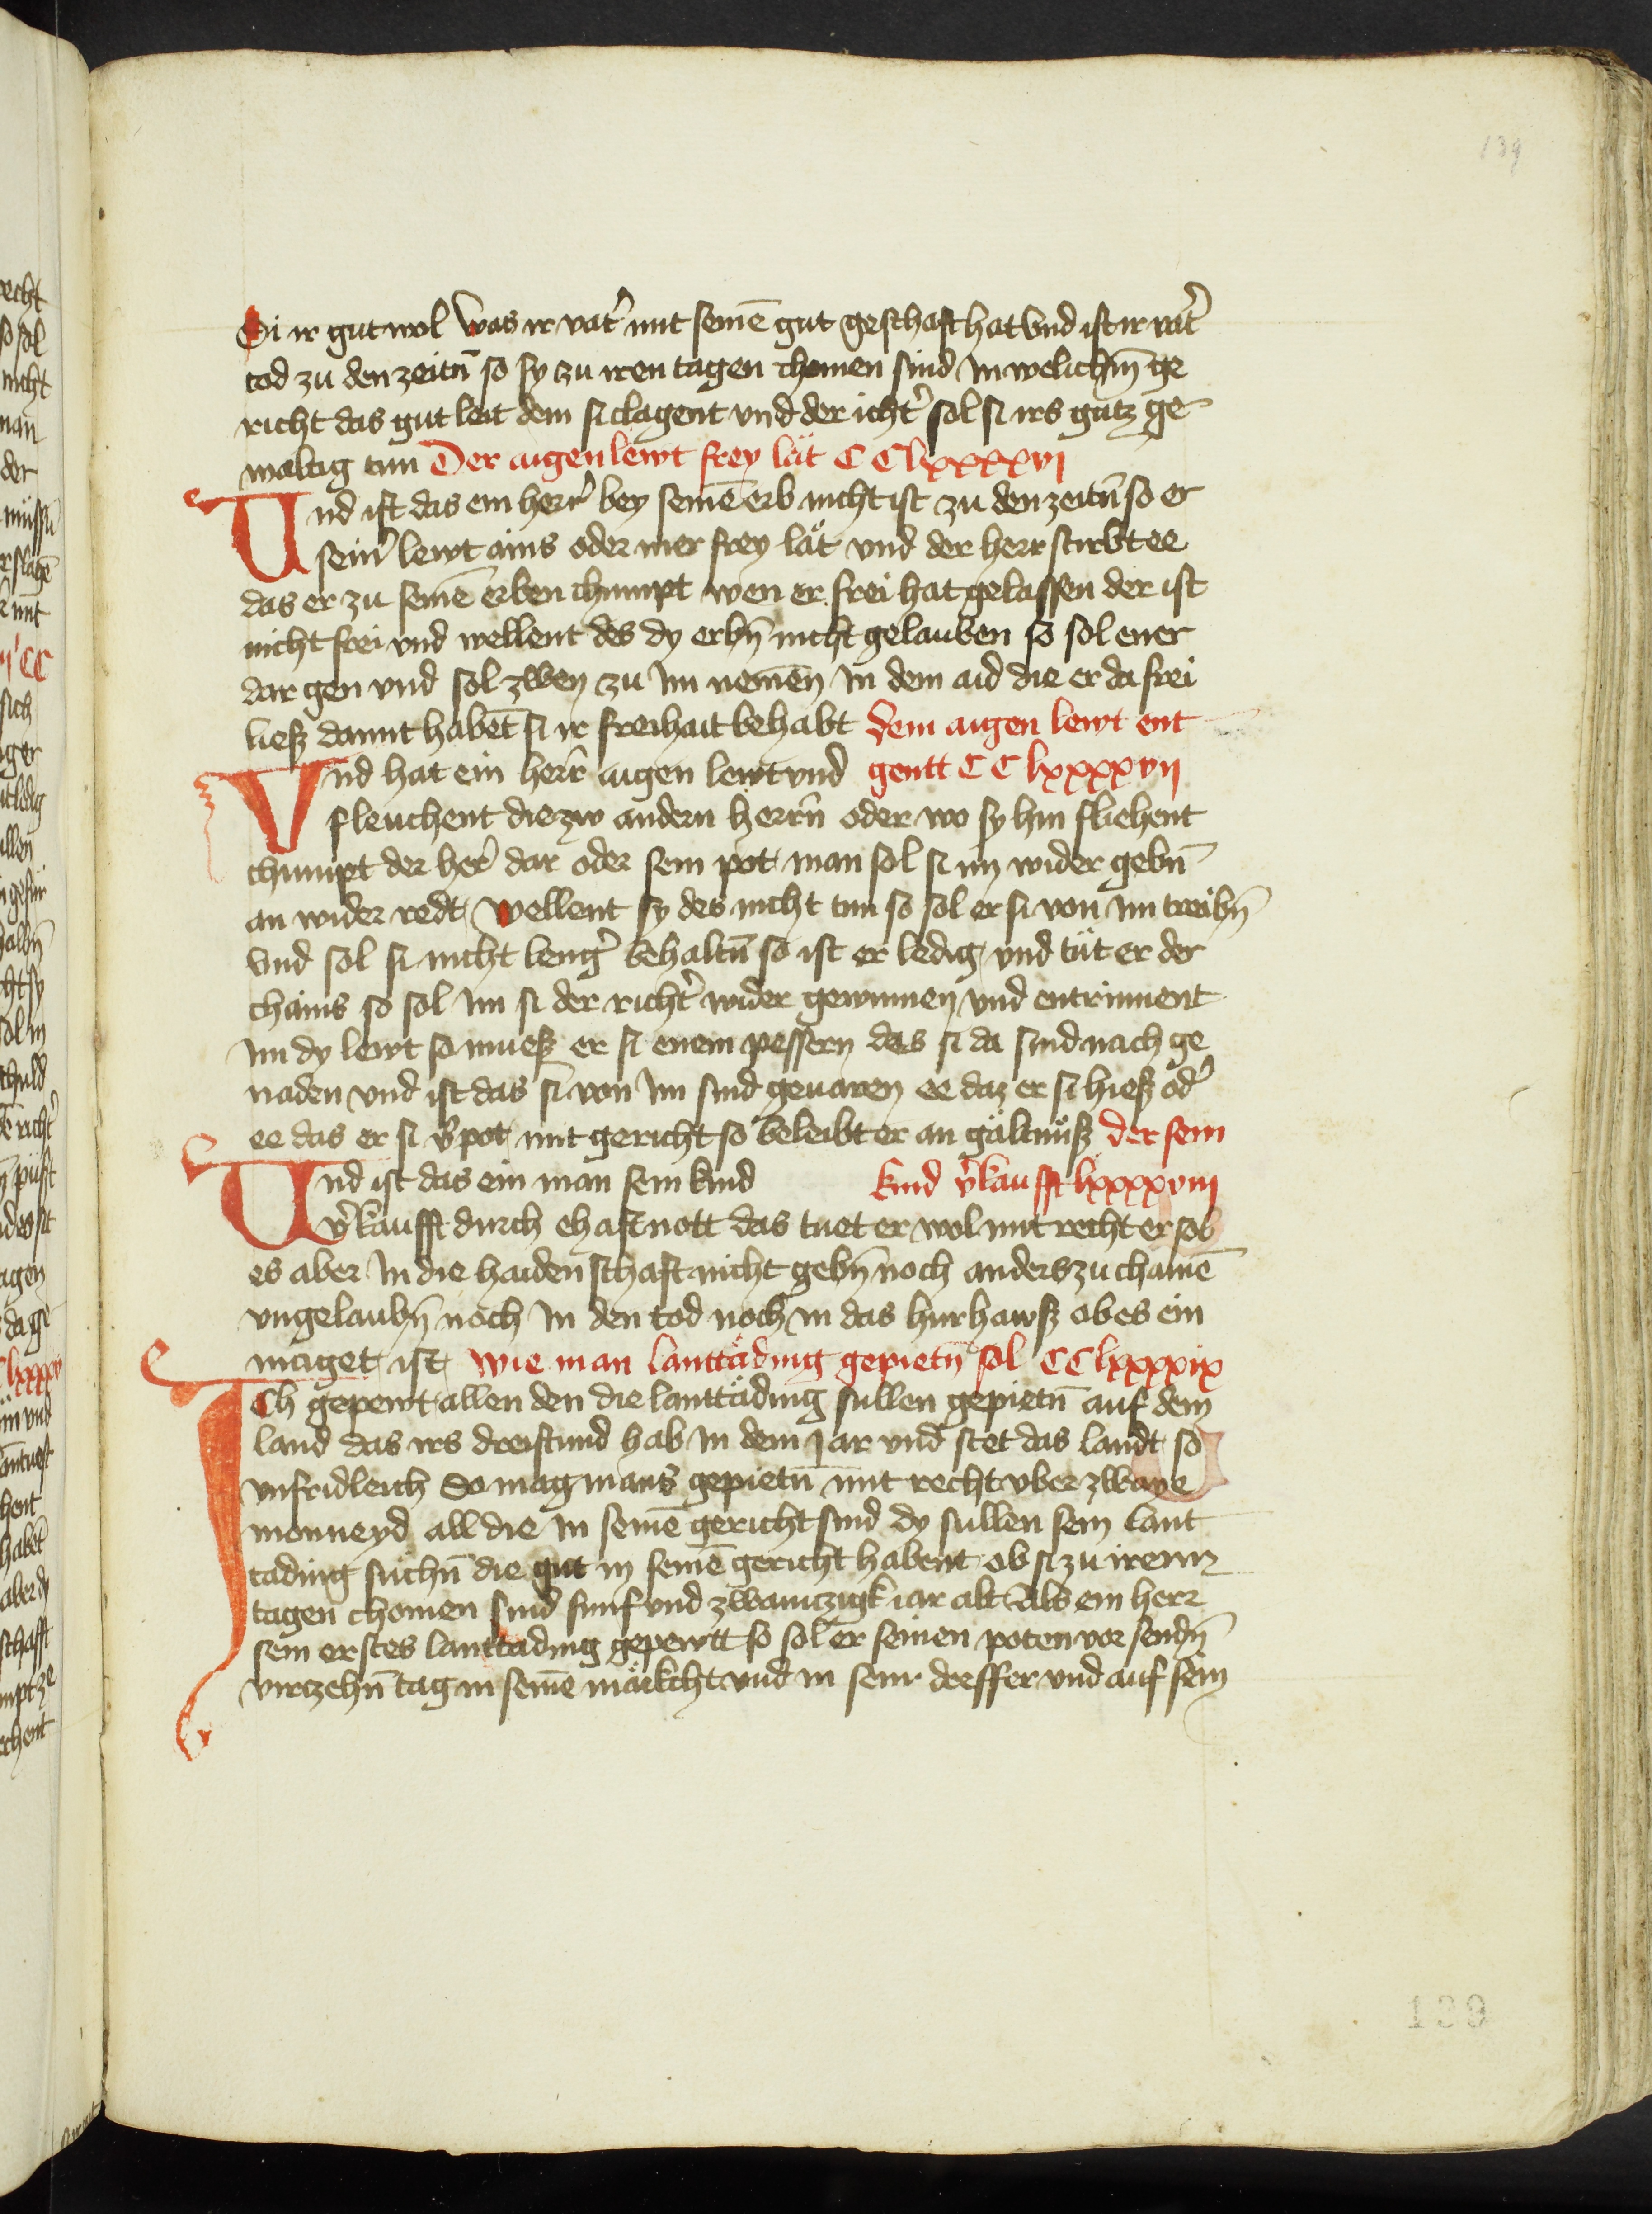 139
Si ir gut wol was ir vat' mit seinē gut geschaft hat vnd ist ir vat'
tod zu den zeitn̄ so sy zu iren tagen chomen sind In welichm̄ ge
richt das gut leit dem si clagent vnd der richt' sol si irs gutz ge
waltig tun Der aigen lewt frey lät CC lxxxxvj
Und ist das ein herr' bey seinē erb nicht ist zu den zeitn̄ so er
sein' lewt ains oder mer frey lät vnd der herr stirbt ee
das er zu seinē erben chumpt wen er frei hat gelassen der ist
nicht frei vnd wellent des dy erbn̄ nicht gelauben so sol ener
dar gen vnd sol zwen zu im nemen̄ In dem aid die er da frei
liesz damit habēt si ir freihait behabt Dem aigen lewt ent
Vnd hat ein herr̄ aigen lewt vnd gentt CC lxxxxvij
fleuchent die zw andern herrn̄ oder wo sy hin fliehent
chumpt der her' dar oder sein pot man sol si im wider gebn̄
an wider redt wellent sy des nicht tun so sol er si von im treibn̄
vnd sol si nicht leng' behaltn̄ so ist er ledig vnd tüt er der
chains so sol im si der richt' wider gewinnen vnd entrinnent
im dy lewt so muesz er si enem pessern das si da sind nach ge
naden vnd ist das si von im sind geuaren ee daz er si hiesz od'
ee das er si v'pot mit gericht so beleibt er an gältnüsz der sein
Und ist das ein man sein kind kind v'kaufft lxxxxviij
v'kaufft durch ehaft nott das tuet er wol mit recht er sol
es aber In die haidenschaft nicht gebn̄ noch anders zu chainē
vngelaubn̄ noch In den tod noch in das hurhawsz ob es ein
maget ist wie man lanttäding gepietn̄ sol CC lxxxxix
ICh gepewt allen den die lanttäding sullen gepietn̄ auf dem
land das irs dreistund hab In dem jar vnd stet das landt so
vnfridleich so mag mans gepietn̄ mit recht vber zwaye
monneyd all die In seinē gericht sind dy sullen sein lant
tading suchn̄ die gut in seinē gericht habent ob si zu irenn
tagen chomen sind funf vnd zwainczigk iar alt als ein herr
sein erstes lanttading gepewtt so sol er seinen poten vor sendn̄
virczehn̄ tag in seinē märkcht vnd in seinr dorffer vnd auf sein
139